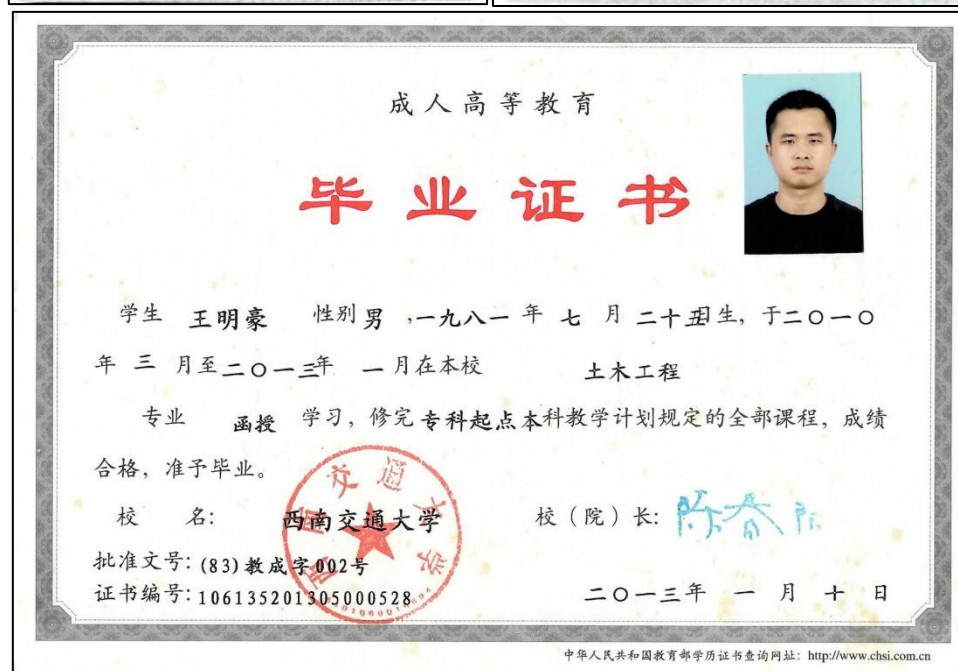 成人高等教育
毕业证书
学生 王明豪 性别 男 ,一九八一 年 七 月 二十五日生, 于二○一○
年 三 月至二○一三年 一月在本校 土木工程
专业 函授 学习, 修完专科起点本科教学计划规定的全部课程, 成绩
合格, 准予毕业。
校 名: 西南交通大学 校(院)长:
批准文号: (83)教成字002号
证书编号: 106135201305000528 二○一三年 一 月 十 日
西南交通大学
中华人民共和国教育部学历证书查询网址: http://www.chsi.com.cn